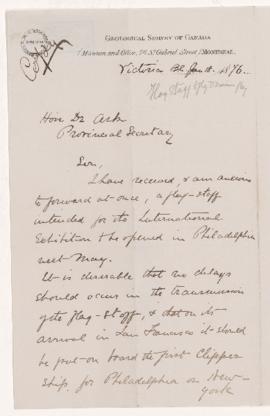 GEOLOGICAL SURVEY OF CANADA
Museum and Office, 76 St Gabriel Street, MONTREAL.
Victoria BC Jan 1876.
Flag Staff
Hon. Dr Ash
Provincial Secretary
Sir,
I have received, & am anxious
to forward at once, a flag-staff
intended for the International
Exhibition to be opened in Philadelphia
next May.
It is desirable that no delays
should occur in the transmission
of the flag-staff, & that on its
arrival in San Francisco it should
be put on board the first Clipper
Ship for Philadelphia or New-
York